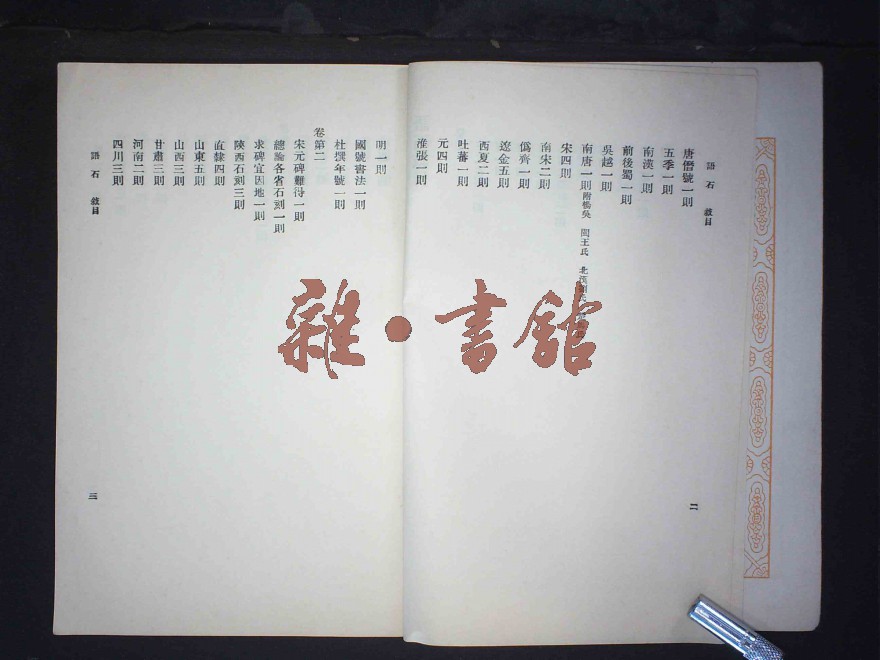 語石 敘目
唐僭號一則
五季一則
南漢一則
前後蜀一則
吳越一則
南唐一則附楊吳 閩王氏 北漢劉氏
宋四則
南宋二則
僞齊一則
遼金五則
西夏二則
吐蕃一則
元四則
淮張一則
二
明一則
國號書法一則
杜撰年號一則
卷第二
宋元碑難得一則
總論各省石刻一則
求碑宜因地一則
陝西石刻三則
直隸四則
山東五則
山西三則
甘肅三則
河南二則
四川三則
語石 敘目
三
雜·書館